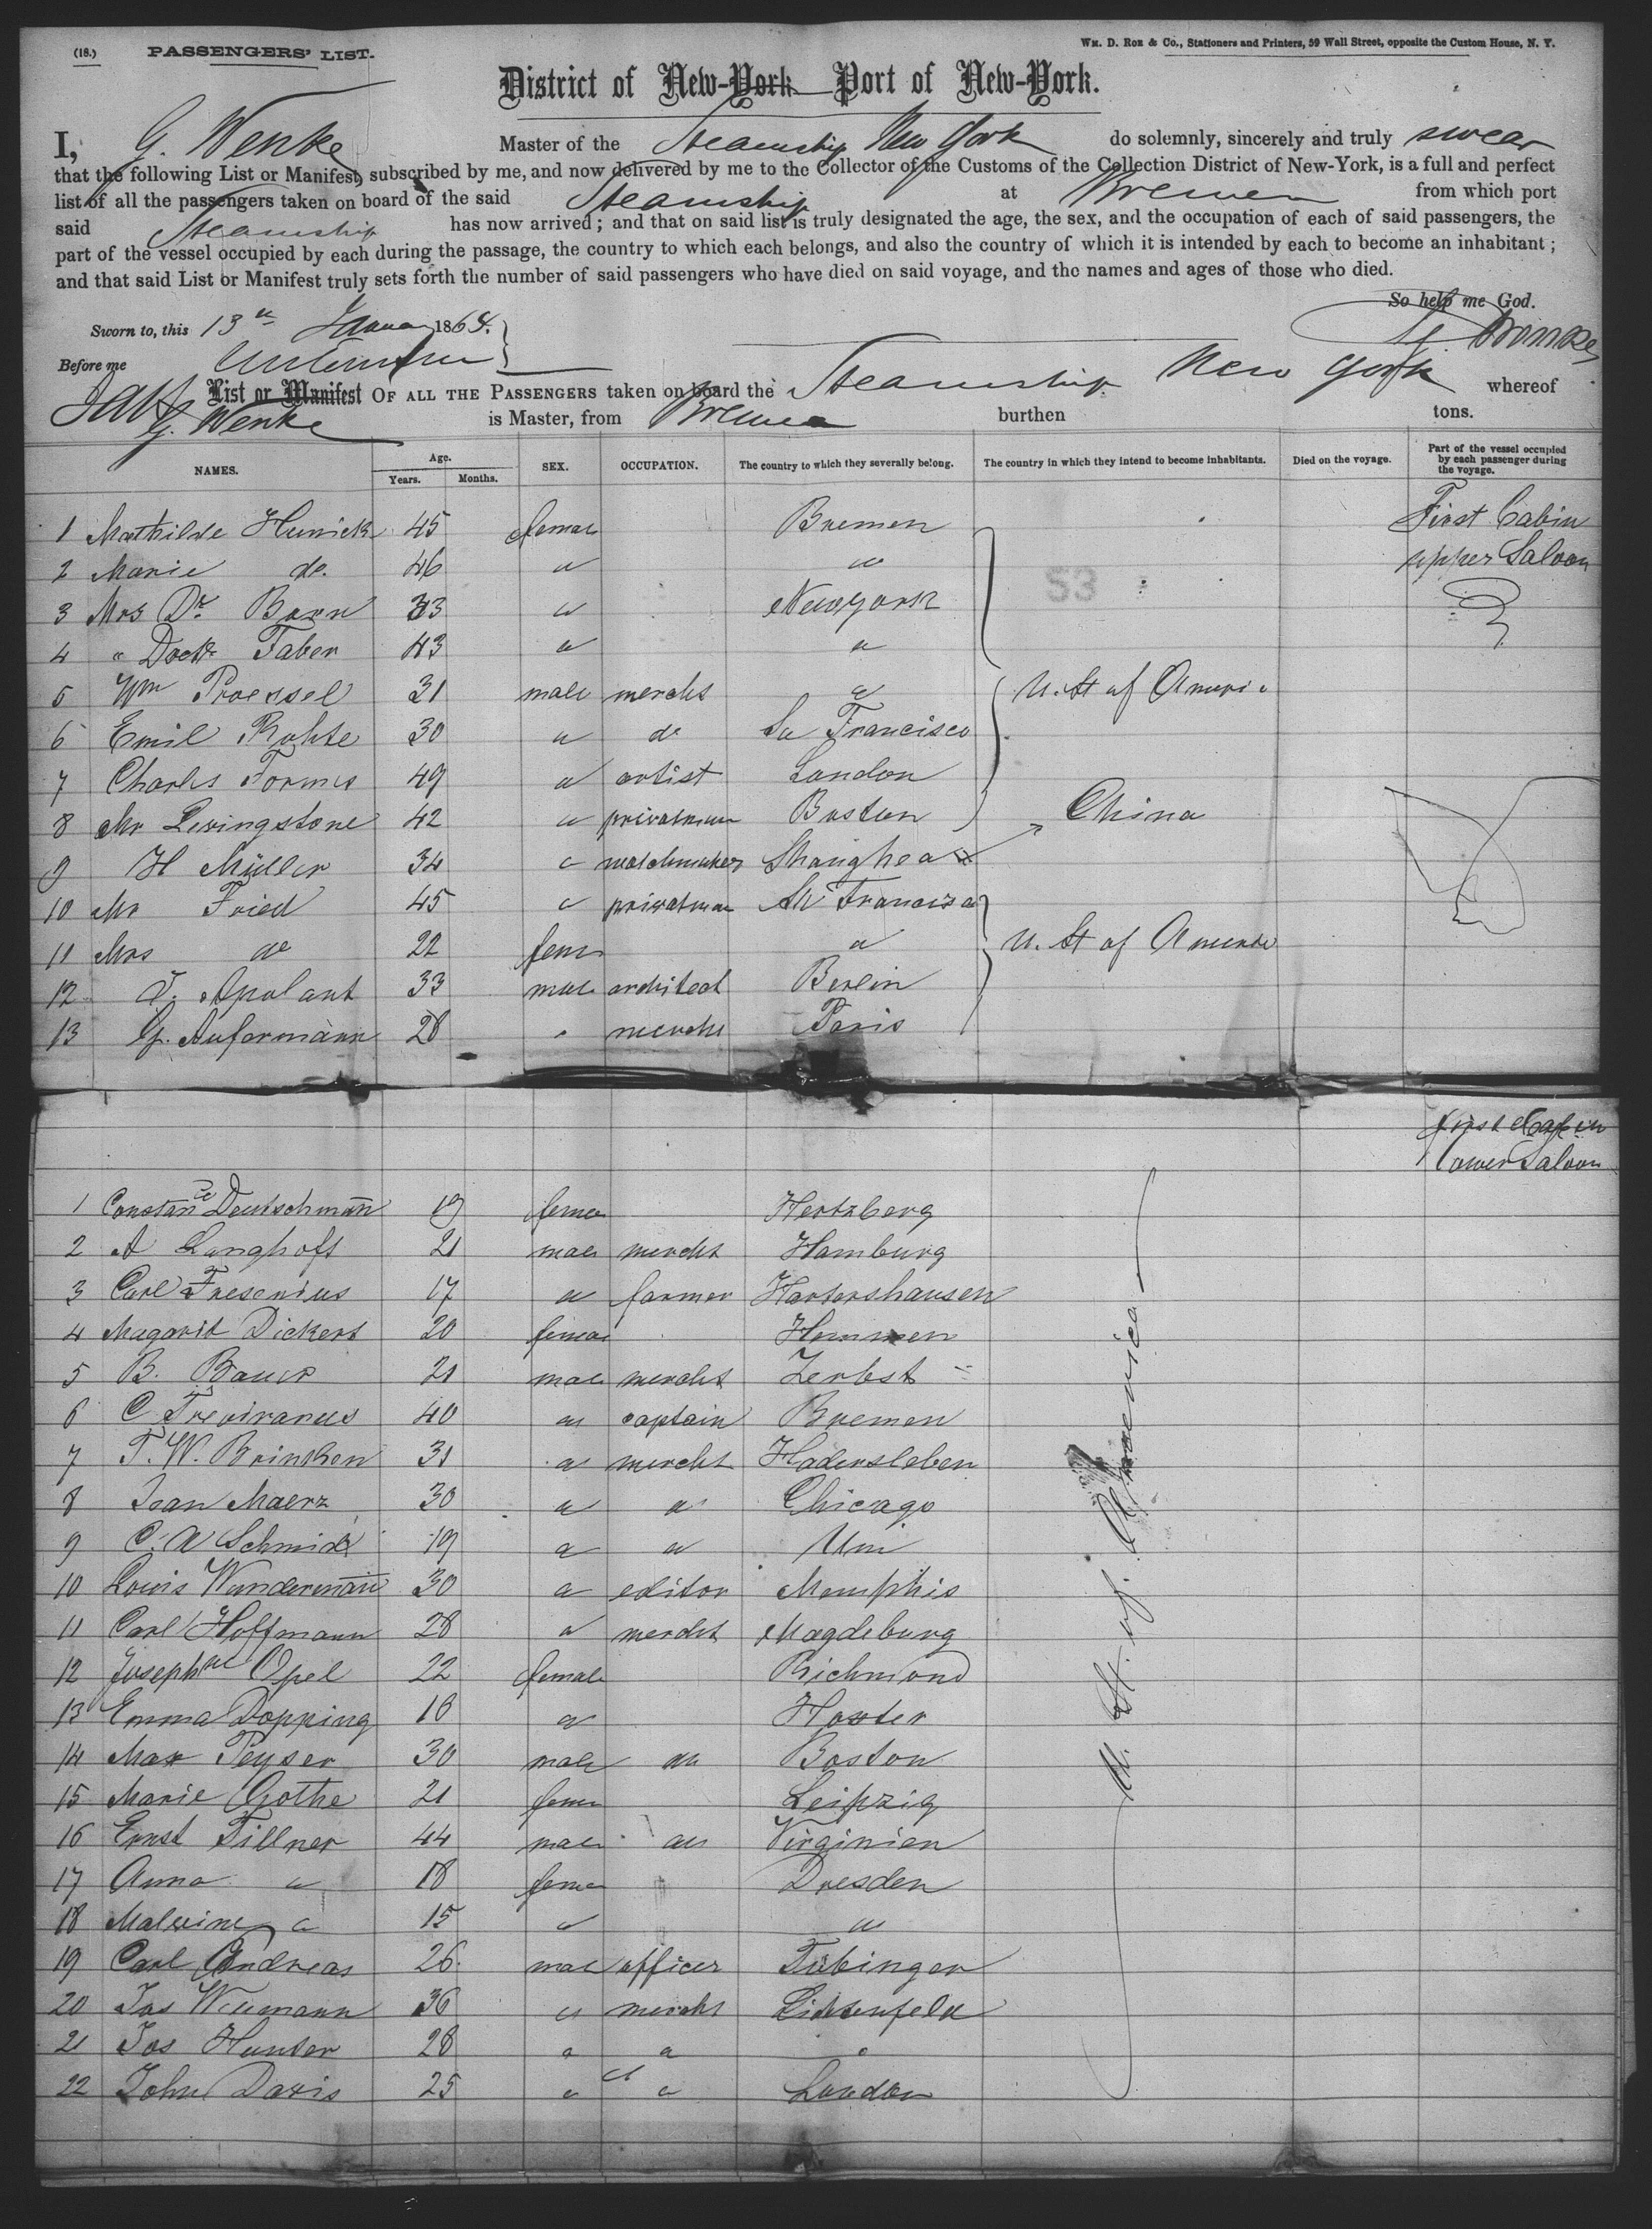 (18.) PASSENGERS' LIST.
WM. D. ROE & CO., Stationers and Printers, 59 Wall Street, opposite the Custom House, N. Y.
District of New-York Port of New-York.
I, G. Wenke Master of the Steamship New York do solemnly, sincerely and truly swear
that the following List or Manifest, subscribed by me, and now delivered by me to the Collector of the Customs of the Collection District of New-York, is a full and perfect
list of all the passengers taken on board of the said Steamship at Bremen from which port
said Steamship has now arrived; and that on said list is truly designated the age, the sex, and the occupation of each of said passengers, the
part of the vessel occupied by each during the passage, the country to which each belongs, and also the country of which it is intended by each to become an inhabitant;
and that said List or Manifest truly sets forth the number of said passengers who have died on said voyage, and the names and ages of those who died.
So help me God.
Sworn to, this 13th 1864. G. Wenke
Before me
List or Manifest OF ALL THE PASSENGERS taken on board the Steamship New York whereof
G. Wenke is Master, from Bremen burthen tons.
NAMES. Age. Years. Months. SEX. OCCUPATION. The country to which they severally belong. The country in which they intend to become inhabitants. Died on the voyage. Part of the vessel occupied by each passenger during the voyage.
1 Mathilde Hunick 45 female Bremen First Cabin
2 Marie do. 46 " " upper Saloon
53
3 Mrs Dr. Born 33 " New York
4 " Doctr Faber 43 " "
5 Wm Proessel 31 male merchs " U. St of Americ
6 Emil Rohte 30 " do Sa Francisco
7 Charles Formes 49 " artist London
8 Mr Levingstone 42 " privatman Boston China
9 H Müller 34 " watchmaker Shanghea
10 Mr Fried 45 " privatman Francisca
11 Mrs do 22 fem " U. St of America
12 J. Apolant 33 male architect Berlin
13 G. Aufermann 28 " merchs Paris
first Cabin
lower Saloon
1 Constance Deutschmann 19 fema Hertzberg
2 A Langhoft 21 male mercht Hamburg
3 Carl Fresenius 17 " farmer Hartershausen
4 Magarit Dickert 20 female Hemmen
5 B. Bauer 21 male mercht Zerbst
6 C Treviranus 40 " captain Bremen
7 T. W. Brinken 31 " mercht Hadersleben
8 Jean Maerz 30 " " Chicago
9 C. A Schmidt 19 " "
10 Louis Wunderman̄ 30 " editor Memphis
11 Carl Hoffmann 28 " mercht Magdeburg
12 Josephne Opel 22 female Richmond
13 Emma Dopping 18 " Hoxter
14 Max Peyser 30 male " Boston
15 Marie Gothe 21 fema Leipzig
16 Ernst Fillner 44 male " Virginien
17 Anna " 18 fema Dresden
18 Malvine " 15 " "
19 Carl Andreas 26 male officer Tübingen
20 Jos Neumann 36 " mercht Lichtenfeld
21 Jos Hunter 28 " " "
22 John Davis 25 " " London
U. St. of America